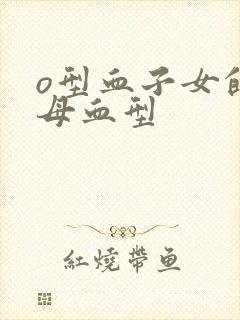 o型血子女的
母血型
紅燒帶鱼